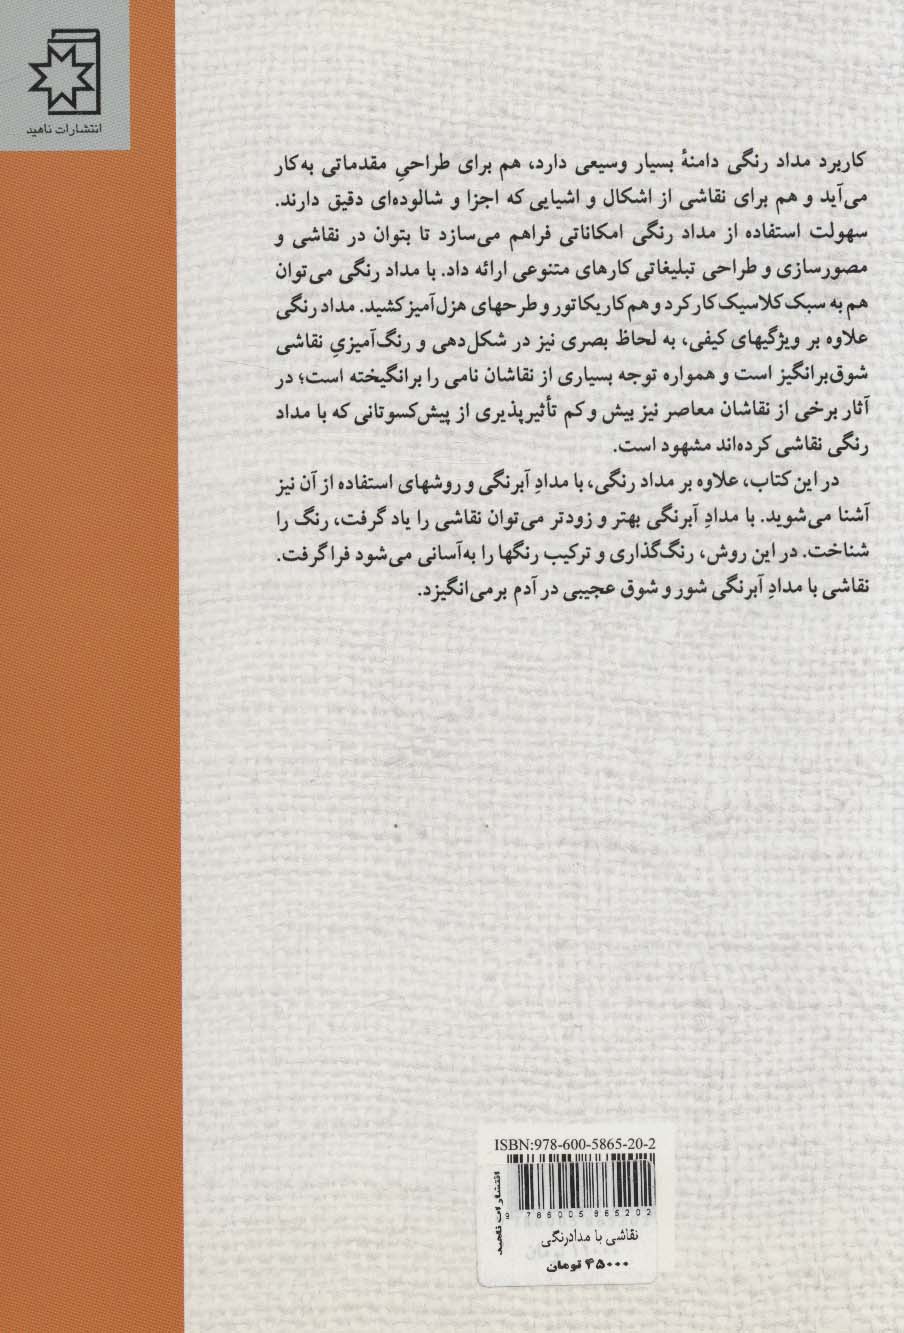 انتشارات ناهید
کاربرد مداد رنگی دامنهٔ بسیار وسیعی دارد، هم برای طراحیِ مقدماتی به‌کار
می‌آید و هم برای نقاشی از اشکال و اشیایی که اجزا و شالوده‌ای دقیق دارند.
سهولت استفاده از مداد رنگی امکاناتی فراهم می‌سازد تا بتوان در نقاشی و
مصورسازی و طراحی تبلیغاتی کارهای متنوعی ارائه داد. با مداد رنگی می‌توان
هم به سبک کلاسیک کار کرد و هم کاریکاتور و طرحهای هزل‌آمیز کشید. مداد رنگی
علاوه بر ویژگیهای کیفی، به لحاظ بصری نیز در شکل‌دهی و رنگ‌آمیزیِ نقاشی
شوق‌برانگیز است و همواره توجه بسیاری از نقاشان نامی را برانگیخته است؛ در
آثار برخی از نقاشان معاصر نیز بیش و کم تأثیرپذیری از پیش‌کسوتانی که با مداد
رنگی نقاشی کرده‌اند مشهود است.
در این کتاب، علاوه بر مداد رنگی، با مدادِ آبرنگی و روشهای استفاده از آن نیز
آشنا می‌شوید. با مدادِ آبرنگی بهتر و زودتر می‌توان نقاشی را یاد گرفت، رنگ را
شناخت. در این روش، رنگ‌گذاری و ترکیب رنگها را به‌آسانی می‌شود فرا گرفت.
نقاشی با مدادِ آبرنگی شور و شوق عجیبی در آدم برمی‌انگیزد.
ISBN:978-600-5865-20-2
انتشارات ناهید
9 786005 865202
نقاشی با مدادرنگی
۴۵۰۰۰ تومان